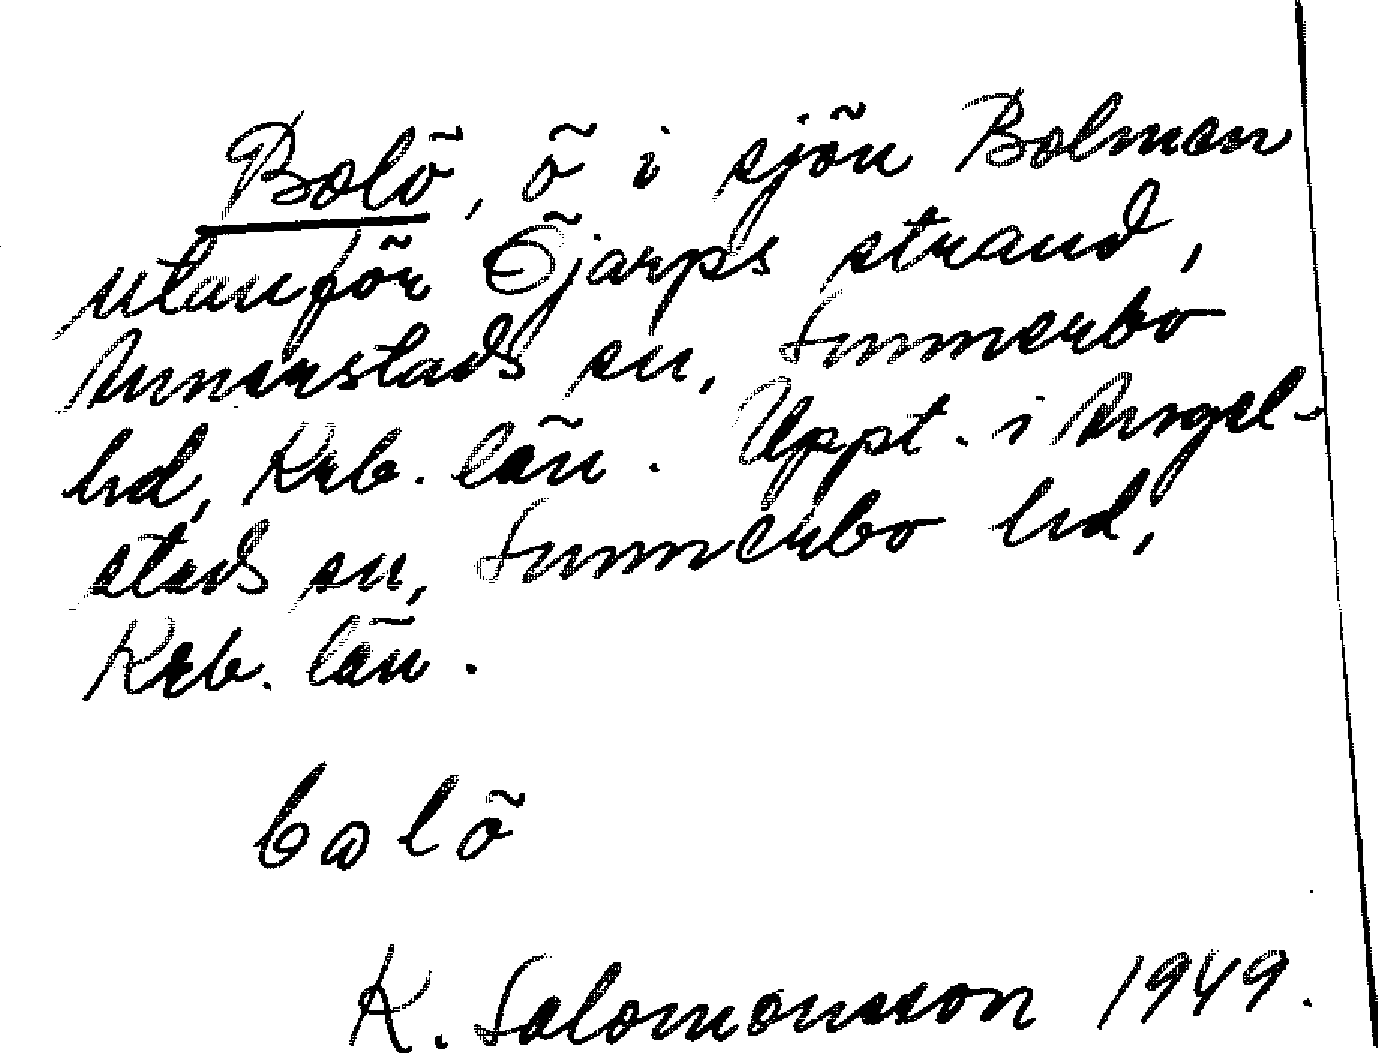 Bolö, ö i sjön Bolmen
utanför Öjarps strand,
Annerstads sn, Sunnerbo
hd, Krb. län. Uppt. i Angel-
stads sn, Sunnerbo hd,
Krb. län.
lö
K. Salomonsson 1949.